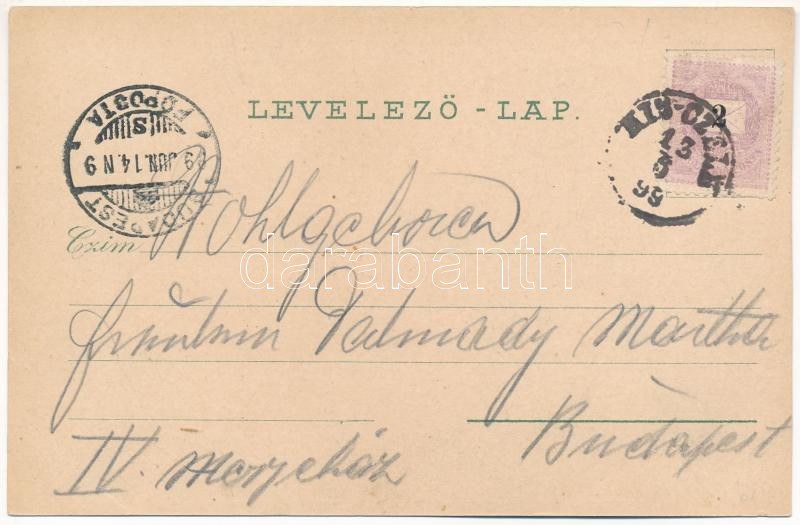 LEVELEZŐ - LAP.
2
KIS-CZELL
13
6
99
BUDAPEST
99 JUN. 14. N 9
S
FŐPOSTA
Czim
Wohlgeboren
Fräulein Talmady Martha
Budapest
IV.
darabanth